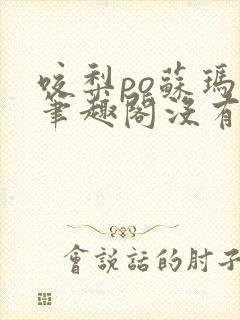 咬梨po蘇瑪
筆趣閣沒有
會說話的肘子